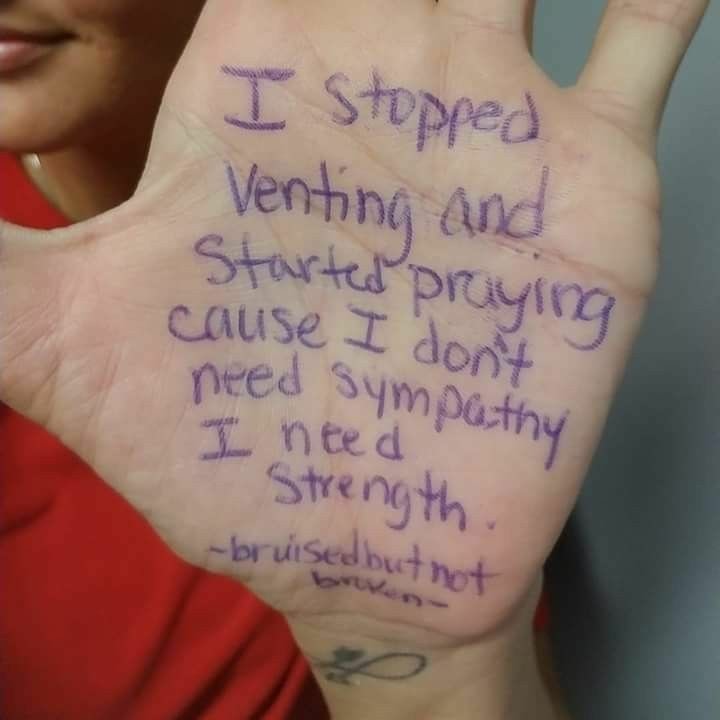 I stopped
Venting and
Started praying
cause I don't
need sympathy
I need
Strength.
~bruisedbutnot
broken~